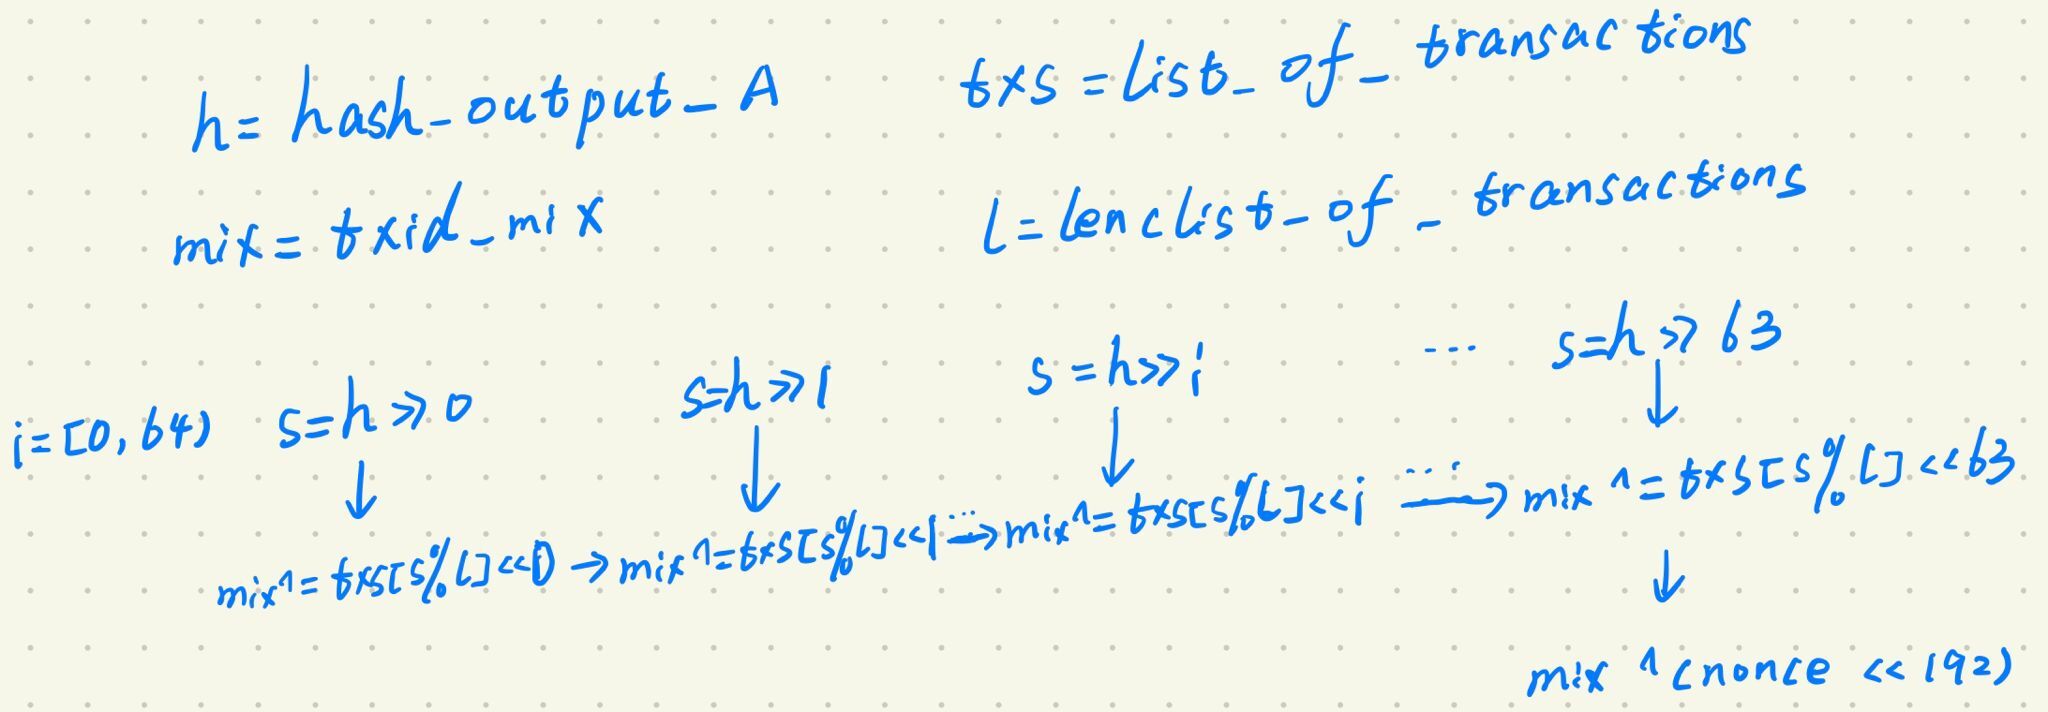 h= hash_output_A txs =list_of_transactions
mix= txid_mix l=len(list_of_transactions
i=[0,64) s=h≫0 s=h≫1 s=h≫i ... s=h≫63
↓ ↓ ↓ ↓
mix^= txs[s%l]<<0 → mix^=txs[s%l]<<1 ...→ mix^= txs[s%l]<<i ...→ mix ^= txs[s%l]<<63
↓
mix ^ (nonce << 192)